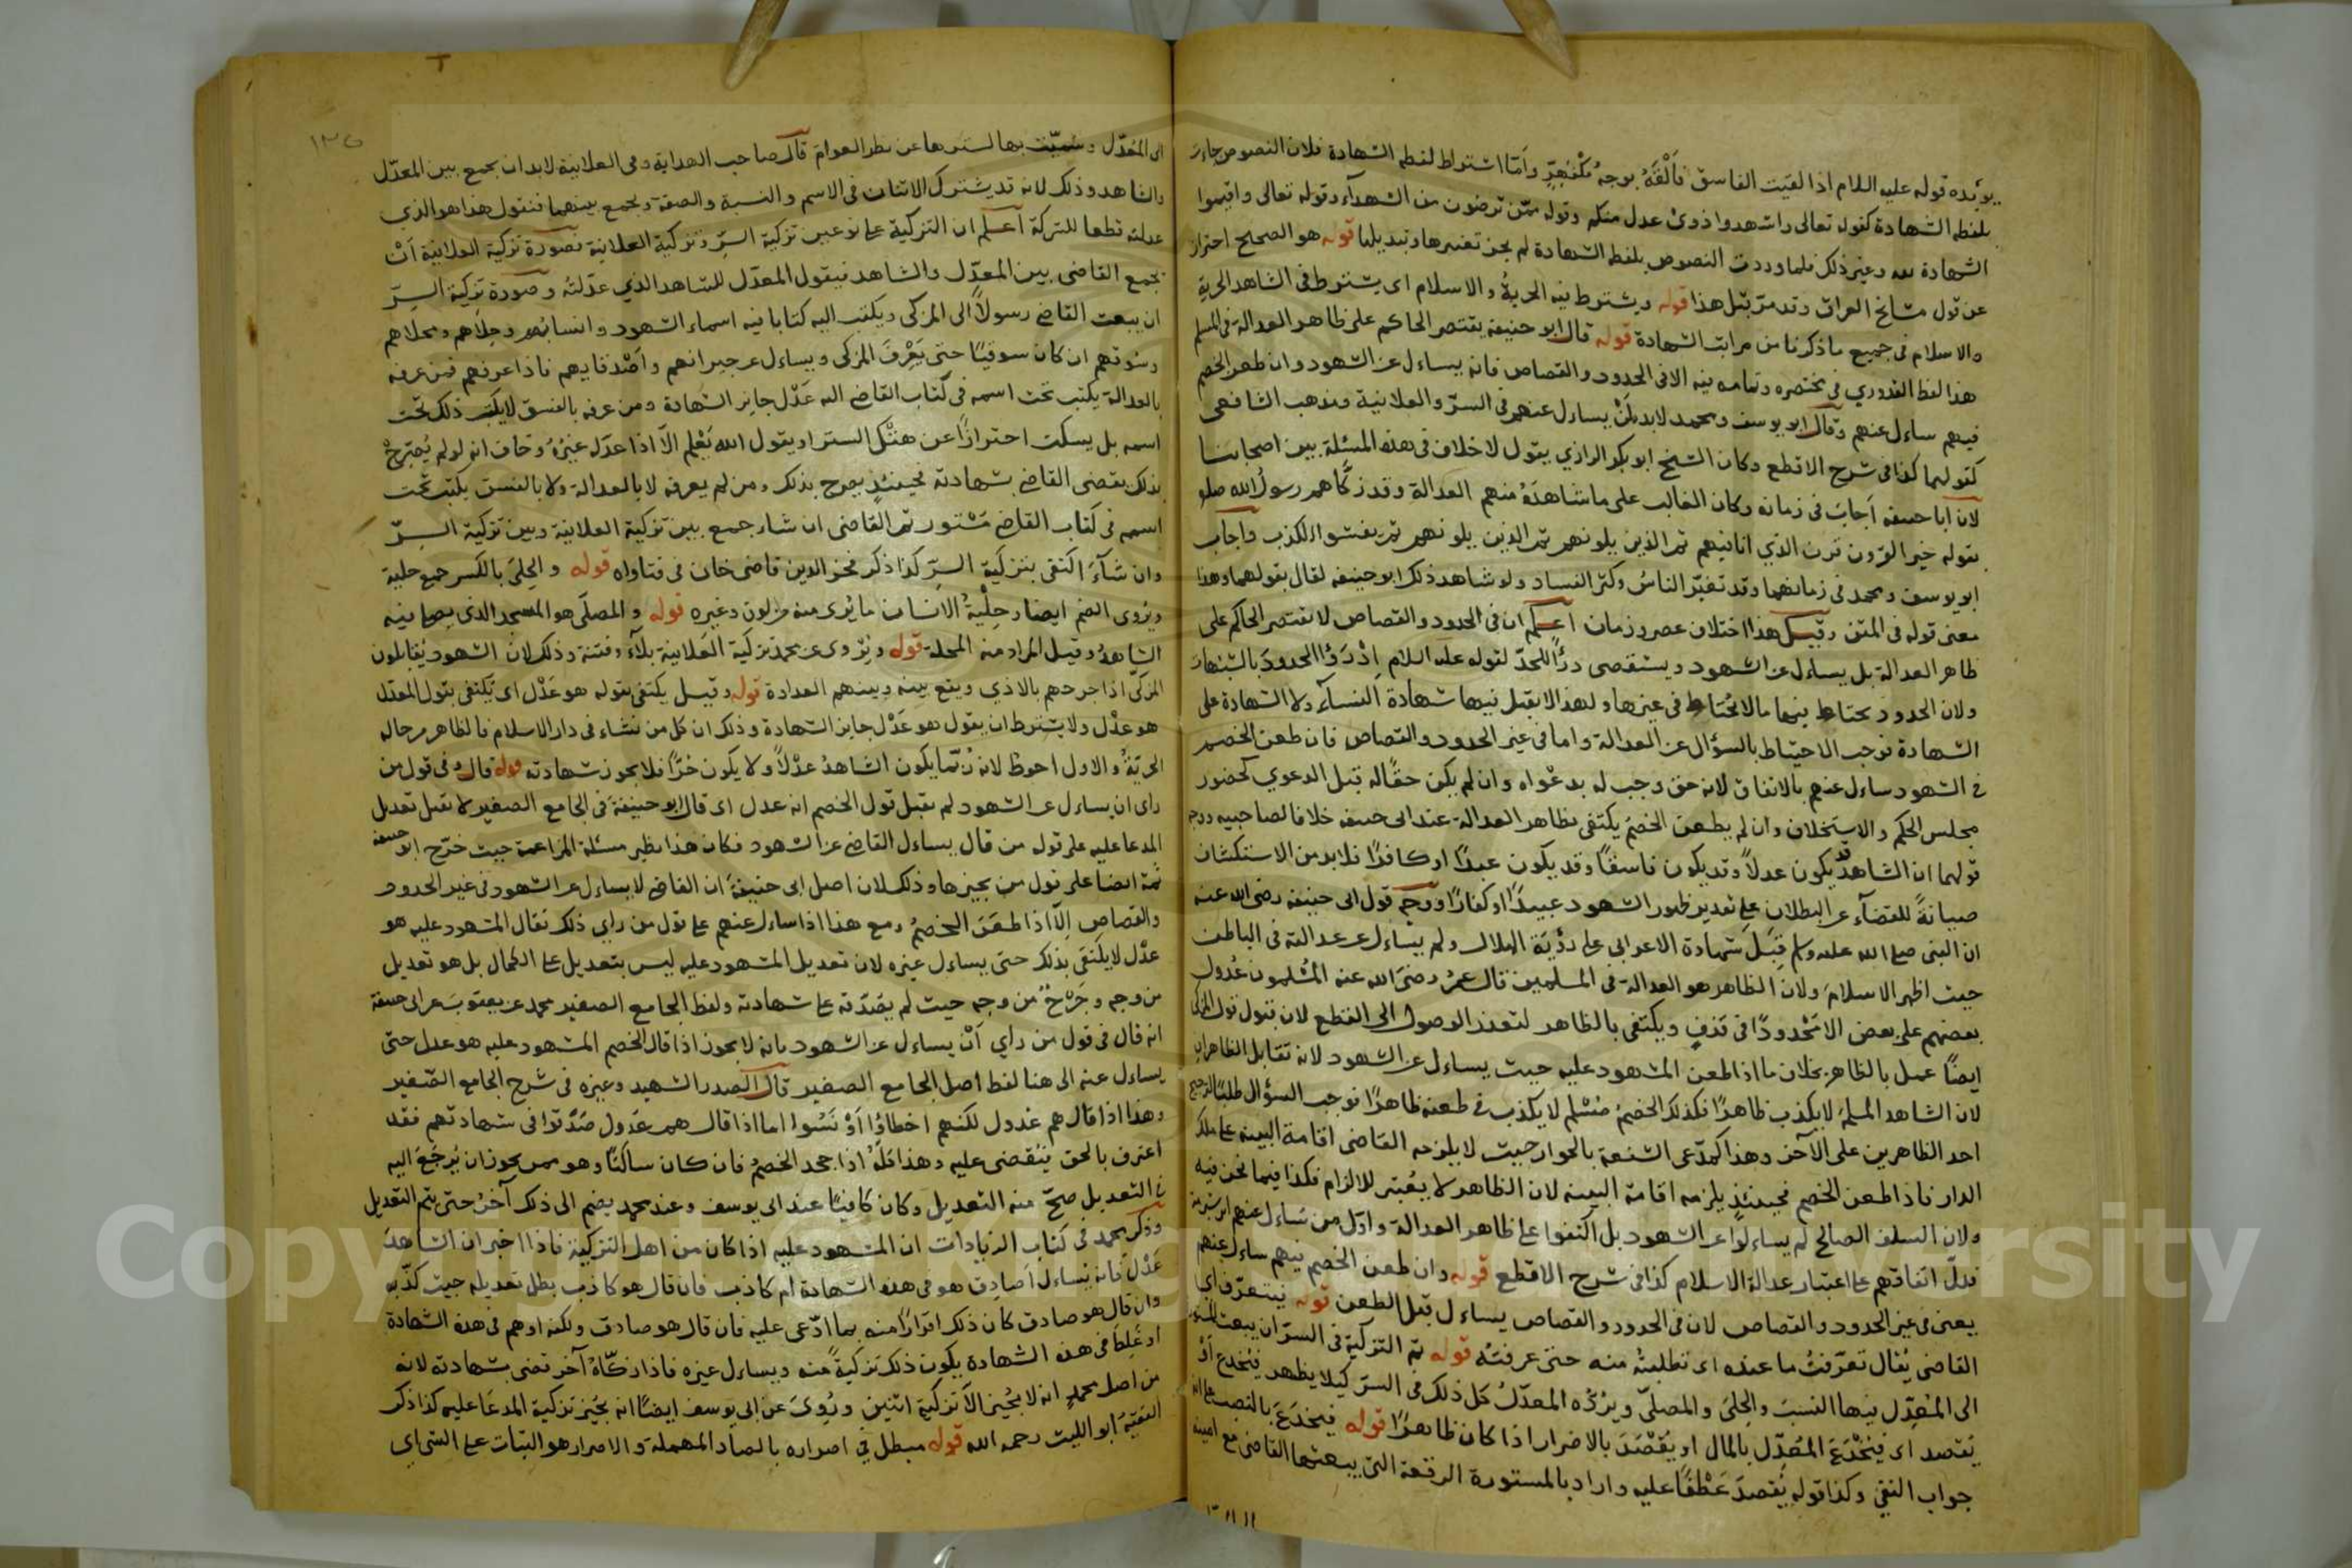 يؤيده قوله عليه السلام اذا لقيت الفاسق فألقه بوجه مكفهر وأما اشتراط لفظ الشهادة فلان النصوص جاءت
بلفظ الشهادة كقوله تعالى واشهدوا ذوى عدل منكم وقوله ممن ترضون من الشهدآء وقوله تعالى واقيموا
الشهادة لله وغير ذلك فلما وردت النصوص بلفظ الشهادة لم يجز تغييرها وتبديلها قوله هو الصحيح احتراز
عن قول مشايخ العراق وقد مر قبل هذا قوله ويشترط فيه الحرية والاسلام اى يشترط فى الشاهد الحرية
والاسلام فى جميع ما ذكرنا من مراتب الشهادة قوله قال ابو حنيفة يقتصر الحاكم على ظاهر العدالة فى المسلم
هذا لفظ القدوري فى مختصره وتمامه فيه الا فى الحدود والقصاص فانه يساءل عن الشهود وان طعن الخصم
فيهم ساءل عنهم وقال ابو يوسف ومحمد لا بد ان يساءل عنهم فى السر والعلانية ومذهب الشافعى
كقولهما كذا فى شرح الاقطع وكان الشيخ ابو بكر الرازي يقول لا خلاف فى هذه المسئلة بين اصحابنا
لان ابا حنيفة أجاب فى زمانه وكان الغالب على ما شاهده منهم العدالة وقد زكاهم رسول الله صلم
بقوله خير القرون قرن الذي انا فيهم ثم الذين يلونهم ثم الذين يلونهم ثم يفشوا الكذب واجاب
ابو يوسف ومحمد فى زمانهما وقد تغير الناس وكثر الفساد ولو شاهد ذلك ابو حنيفة لقال بقولهما وهذا
معنى قوله فى المتن وقيل هذا اختلاف عصر وزمان اعلم ان فى الحدود والقصاص لا يقتصر الحاكم على
ظاهر العدالة بل يساءل عن الشهود ويستقصى درءًا للحد لقوله عليه السلام إدرؤا الحدود بالشبهات
ولان الحدود يحتاط فيها ما لا يحتاط فى غيرها ولهذا لا يقبل فيها شهادة النسآء ولا الشهادة على
الشهادة فوجب الاحتياط بالسؤال عن العدالة واما فى غير الحدود والقصاص فان طعن الخصم
في الشهود ساءل عنهم بالاتفاق لانه حق وجب له بدعواه وان لم يكن حقًا له قبل الدعوي كحضور
مجلس الحكم والاستحلاف وان لم يطعن الخصم يكتفى بظاهر العدالة عند ابى حنيفة خلافا لصاحبيه ووجه
قولهما ان الشاهد قد يكون عدلاً وقد يكون فاسقًا وقد يكون عبدًا او كافرًا فلا بد من الاستكشاف
صيانةً للقضآء عن البطلان على تقدير ظهور الشهود عبيدًا او كفارًا ووجه قول ابى حنيفة رضى الله عنه
ان النبى صلى الله عليه وسلم قبل شهادة الاعرابى على رؤية الهلال ولم يساءل عن عدالته فى الباطن
حيث اظهر الاسلام ولان الظاهر هو العدالة فى المسلمين قال عمر رضى الله عنه المسلمون عدول
بعضهم على بعض الا محدودًا فى قذف ويكتفى بالظاهر لتعذر الوصول الى القطع لان قبول قول المزكى
ايضًا عمل بالظاهر بخلاف ما اذا طعن المشهود عليه حيث يساءل عن الشهود لانه تقابل الظاهران
لان الشاهد المسلم لا يكذب ظاهرًا فكذلك الخصم مسلم لا يكذب في طعنه ظاهرًا فوجب السؤال طلبًا لترجيح
احد الظاهرين على الآخر وهذا كمدعى الشفعة بالجوار حيث لا يلزمه القاضى اقامة البينة على ملك
الدار فاذا طعن الخصم فحينئذ يلزمه اقامة البينة لان الظاهر لا يعتبر للالزام فكذا فيما نحن فيه
ولان السلف الصالح لم يساءلوا عن الشهود بل اكتفوا على ظاهر العدالة واول من ساءل عنهم ابن شبرمة
فدل اتفاقهم على اعتبار عدالة الاسلام كذا فى شرح الاقطع قوله وان طعن الخصم فيهم ساءل عنهم
يعنى فى غير الحدود والقصاص لان فى الحدود والقصاص يساءل قبل الطعن قوله فيتعرف اى
القاضى يقال تعرفت ما عنده اى تطلبت منه حتى عرفته قوله ثم التزكية فى السر ان يبعث المستورة
الى المعدل فيها النسب والحلى والمصلى ويرده المعدل كل ذلك فى السر كيلا يظهر فيخدع أو
يقصد اى فيخدع المعدل بالمال او يقصد بالاضرار اذا كان ظاهرًا قوله فيخدع بالنصب على انه
جواب النفى وكذا قوله يقصد عطفًا عليه واراد بالمستورة الرقعة التى يبعثها القاضى مع امينه
١٣٥
الى المعدل وسميت بها لسترها عن نظر العوام قال صاحب الهداية وفى العلانية لا بد ان يجمع بين المعدل
والشاهد وذلك لانه قد يشترك الاثنان فى الاسم والنسبة والصفة ويجمع بينهما فنقول هذا هو الذي
عدلته قطعا للشركة اعلم ان التزكية على نوعين تزكية السر وتزكية العلانية فصورة تزكية العلانية أن
يجمع القاضى بين المعدل والشاهد فيقول المعدل للشاهد الذي عدلته وصورة تزكية السر
ان يبعث القاضى رسولاً الى المزكى ويكتب اليه كتابا فيه اسماء الشهود وانسابهم وحلاهم ومحلاهم
وسوقهم ان كان سوقيًا حتى يعرف المزكى ويساءل عن جيرانهم وأصدقايهم فاذا عرفهم فمن عرفه
بالعدالة يكتب تحت اسمه فى كتاب القاضى اليه عدل جايز الشهادة ومن عرفه بالفسق لا يكتب ذلك تحت
اسمه بل يسكت احترازًا عن هتك الستر او يقول الله يعلم الا اذا عدل غيره وخاف انه لو لم يصرح
بذلك يقضى القاضى بشهادته فحينئذ يصرح بذلك ومن لم يعرفه لا بالعدالة ولا بالفسق يكتب تحت
اسمه فى كتاب القاضى مستور ثم القاضى ان شاء جمع بين تزكية العلانية وبين تزكية السر
وان شآء اكتفى بتزكية السر كذا ذكر فخر الدين قاضى خان فى فتاواه قوله والحلى بالكسر جمع حلية
ويروى الضم ايضا وحلية الانسان ما يرى منه من لون وغيره قوله والمصلى هو المسجد الذى يصلى فيه
الشاهد وقيل المراد منه المحلة قوله ويروى عن محمد تزكية العلانية بلآء وفتنة وذلك لان الشهود يقابلون
المزكى اذا جرحهم بالاذي ويقع بينه وبينهم العداوة قوله وقيل يكتفى بقوله هو عدل اى يكتفى بقول المعدل
هو عدل ولا يشترط ان يقول هو عدل جايز الشهادة وذلك ان كل من نشاء فى دار الاسلام فالظاهر من حاله
الحرية والاول احوط لانه ربما يكون الشاهد عدلاً ولا يكون حرًا فلا يجوز شهادته قوله قال وفى قول من
راى ان يساءل عن الشهود لم يقبل قول الخصم انه عدل اى قال ابو حنيفة فى الجامع الصغير لا يقبل تعديل
المدعا عليه على قوله من قال يساءل القاضى عن الشهود فكان هذا نظير مسئلة المزارعة حيث خرج ابو حنيفة
ثمة ايضا على قول من يجيزها وذلك لان اصل ابى حنيفة ان القاضى لا يساءل عن الشهود فى غير الحدود
والقصاص إلا اذا طعن الخصم ومع هذا اذا ساءل عنهم على قول من راى ذلك فقال المشهود عليه هو
عدل لا يكتفى بذلك حتى يساءل غيره لان تعديل المشهود عليه ليس بتعديل على الكمال بل هو تعديل
من وجه وجرح من وجه حيث لم يصدقه على شهادته ولفظ الجامع الصغير محمد عن يعقوب عن ابى حنيفة
انه قال فى قول من راي أن يساءل عن الشهود بانه لا يجوز اذا قال الخصم المشهود عليه هو عدل حتى
يساءل عنه الى هنا لفظ اصل الجامع الصغير قال الصدر الشهيد وغيره فى شرح الجامع الصغير
وهذا اذا قال هم عدول لكنهم اخطاؤا أو نسوا اما اذا قال هم عدول صدقوا فى شهادتهم فقد
اعترف بالحق فيقضى عليه وهذا كله اذا جحد الخصم فان كان ساكتًا وهو ممن يجوز ان يرجع اليه
فى التعديل صح منه التعديل وكان كافيًا عند ابى يوسف وعند محمد يضم الى ذلك آخر حتى يتم التعديل
وذكر محمد فى كتاب الزيادات ان المشهود عليه اذا كان من اهل التزكية فاذا اخبر ان الشاهد
عدل فانه يساءل أصادق هو فى هذه الشهادة ام كاذب فان قال هو كاذب بطل تعديله حيث كذبه
وان قال هو صادق كان ذلك اقرارًا منه بما ادعى عليه فان قال هو صادق ولكنه اوهم فى هذه الشهادة
او غلط فى هذه الشهادة يكون ذلك تزكيةً منه ويساءل غيره فاذا زكاه آخر تقضى بشهادته لانه
من اصل محمد انه لا يجيز الا تزكية اثنين وروى عن ابى يوسف ايضًا انه يجيز تزكية المدعا عليه كذا ذكر
الفقيه ابو الليث رحمه الله قوله مبطل في اصراره بالصاد المهملة والاصرار هو الثبات على الشى اي
Copyright © King Saud University